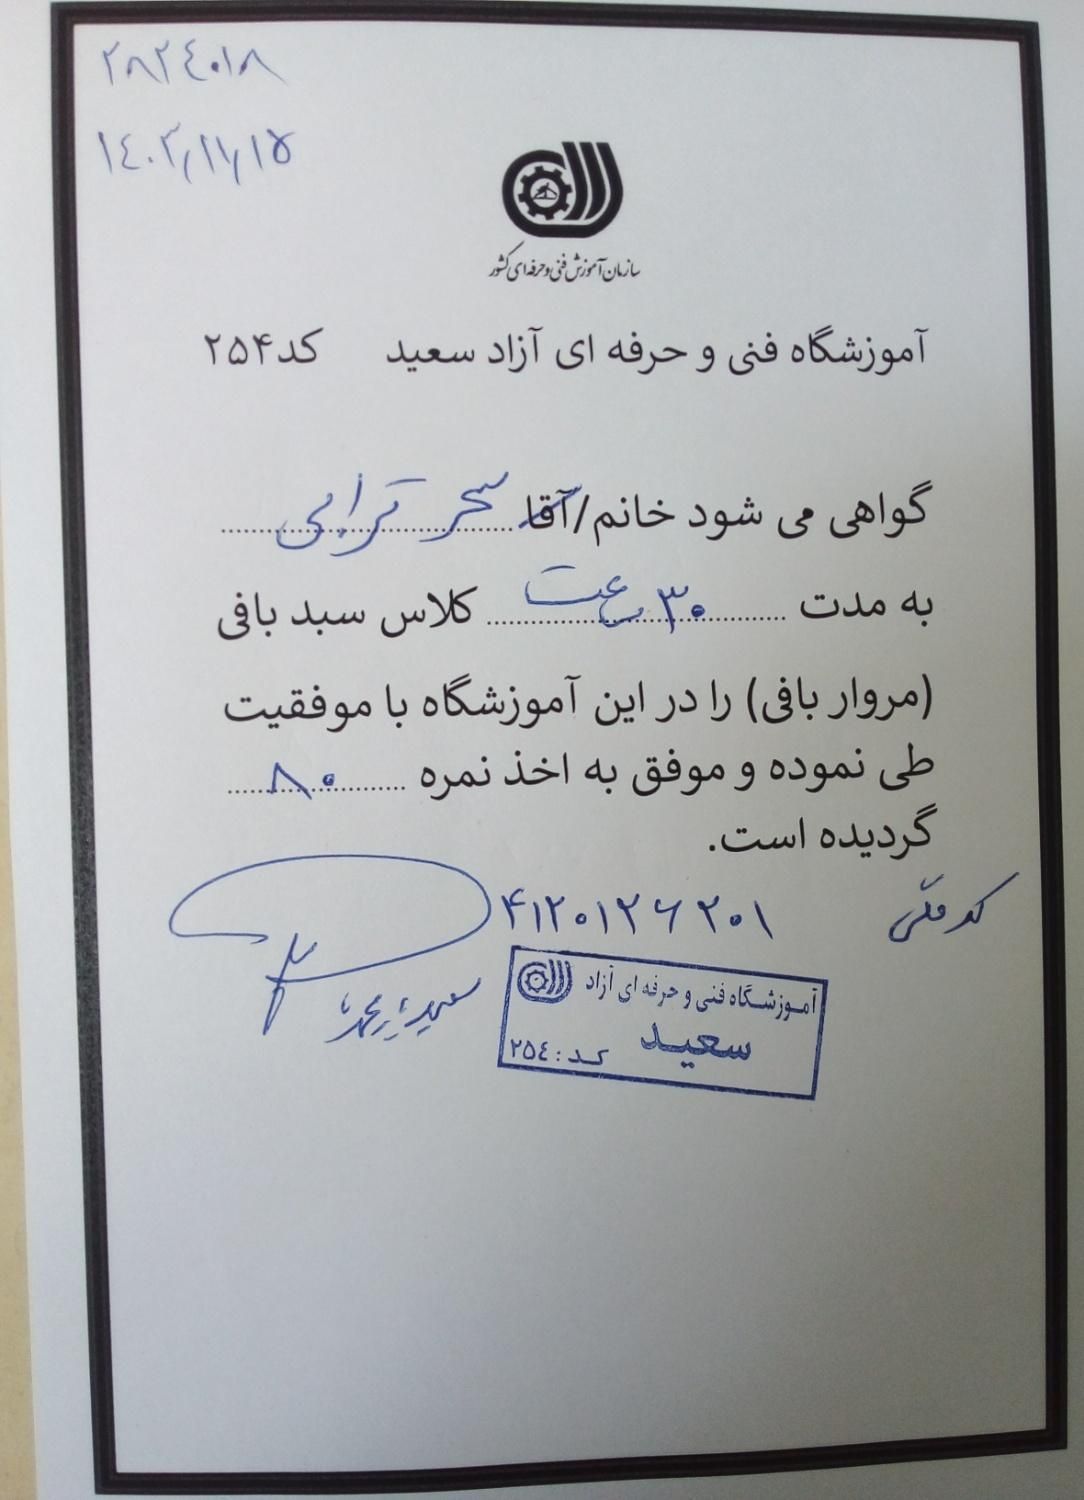 ۲۸۲۴۰۱۸
۱۴۰۲/۱۱/۱۵
سازمان آموزش فنی و حرفه ای کشور
آموزشگاه فنی و حرفه ای آزاد سعید کد ۲۵۴
گواهی می شود خانم/آقا سحر ترابی
به مدت ۳۰ ساعت کلاس سبد بافی
(مروار بافی) را در این آموزشگاه با موفقیت
طی نموده و موفق به اخذ نمره ۸۰
گردیده است.
کد ملی ۴۱۲۰۱۲۶۲۰۱
آموزشگاه فنی و حرفه ای آزاد
سعید
کد: ۲۵٤